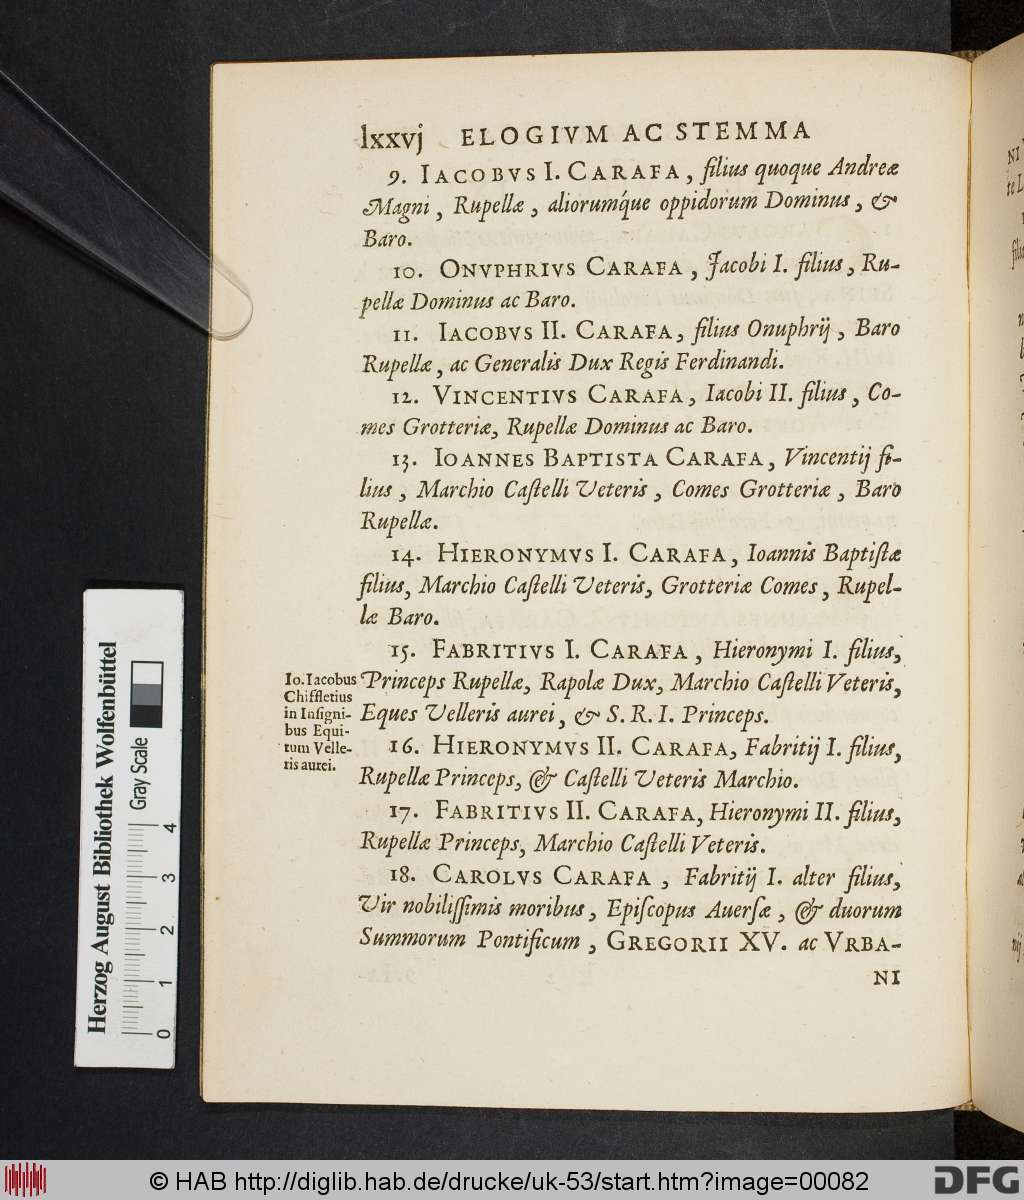 lxxvj ELOGIVM AC STEMMA
9. IACOBVS I. CARAFA, filius quoque Andreæ
Magni, Rupellæ, aliorumq́ue oppidorum Dominus, &
Baro.
10. ONVPHRIVS CARAFA, Jacobi I. filius, Ru-
pellæ Dominus ac Baro.
11. IACOBVS II. CARAFA, filius Onuphrij, Baro
Rupellæ, ac Generalis Dux Regis Ferdinandi.
12. VINCENTIVS CARAFA, Iacobi II. filius, Co-
mes Grotteriæ, Rupellæ Dominus ac Baro.
13. IOANNES BAPTISTA CARAFA, Vincentij fi-
lius, Marchio Caſtelli Veteris, Comes Grotteriæ, Baro
Rupellæ.
14. HIERONYMVS I. CARAFA, Ioannis Baptiſtæ
filius, Marchio Caſtelli Veteris, Grotteriæ Comes, Rupel-
læ Baro.
15. FABRITIVS I. CARAFA, Hieronymi I. filius,
Princeps Rupellæ, Rapolæ Dux, Marchio Caſtelli Veteris,
Eques Velleris aurei, & S. R. I. Princeps.
Io. Iacobus
Chiffletius
in Inſigni-
bus Equi-
tum Velle-
ris aurei.
16. HIERONYMVS II. CARAFA, Fabritij I. filius,
Rupellæ Princeps, & Caſtelli Veteris Marchio.
17. FABRITIVS II. CARAFA, Hieronymi II. filius,
Rupellæ Princeps, Marchio Caſtelli Veteris.
18. CAROLVS CARAFA, Fabritij I. alter filius,
Vir nobiliſſimis moribus, Epiſcopus Auerſæ, & duorum
Summorum Pontificum, GREGORII XV. ac VRBA-
NI
Herzog August Bibliothek Wolfenbüttel
Gray Scale
0 1 2 3 4
© HAB http://diglib.hab.de/drucke/uk-53/start.htm?image=00082
DFG